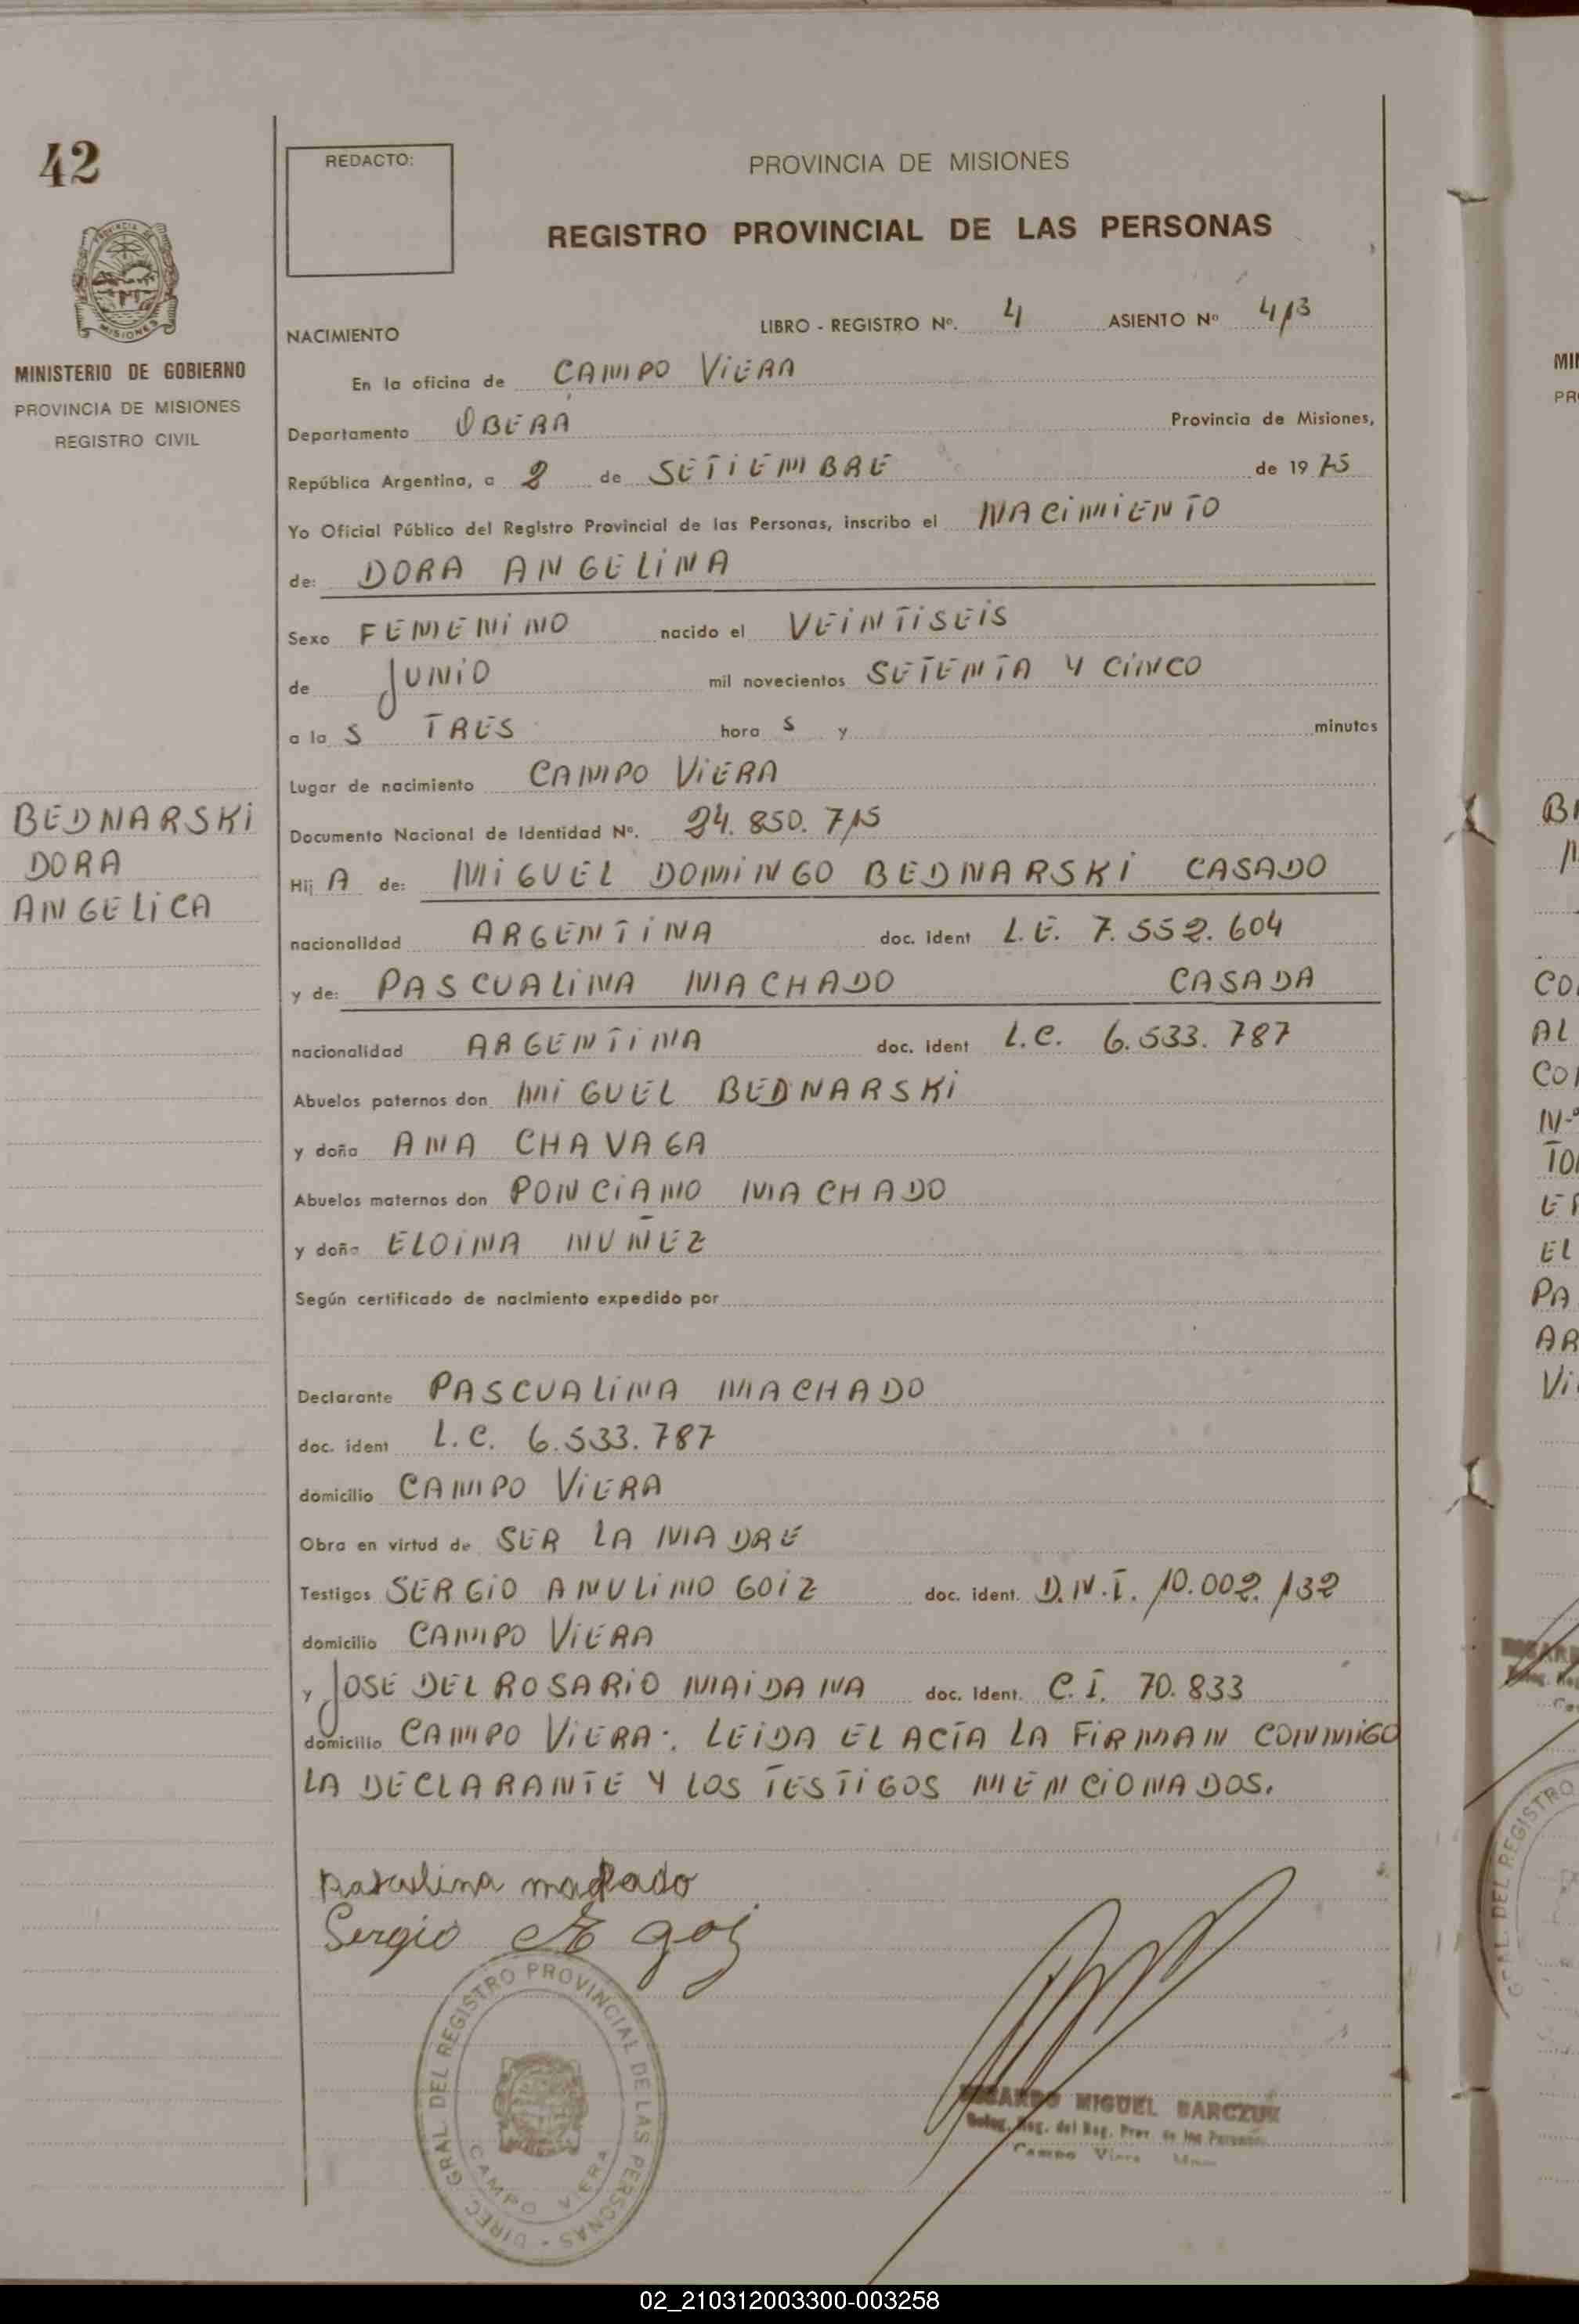 42
REDACTO:
PROVINCIA DE MISIONES
REGISTRO PROVINCIAL DE LAS PERSONAS
PROVINCIA DE
MISIONES
MINISTERIO DE GOBIERNO
PROVINCIA DE MISIONES
REGISTRO CIVIL
NACIMIENTO LIBRO - REGISTRO Nº. 4 ASIENTO Nº 413
En la oficina de CAMPO ViERA
Departamento OBERA Provincia de Misiones,
República Argentina, a 2 de SETiEMBRE de 1975
Yo Oficial Público del Registro Provincial de las Personas, inscribo el NACiMiENTO
de: DORA ANGELiNA
Sexo FEMENiNO nacido el VEiNTiSEiS
de JUNiO mil novecientos SETENTA Y CiNCO
a la S TRES hora S y minutos
Lugar de nacimiento CAMPO ViERA
Documento Nacional de Identidad Nº. 24.850.715
BEDNARSKi
DORA
ANGELiCA
Hij A de: MiGUEL DOMiNGO BEDNARSKi CASADO
nacionalidad ARGENTiNA doc. ident L.E. 7.552.604
y de: PASCUALiNA MACHADO CASADA
nacionalidad ARGENTiNA doc. ident L.C. 6.533.787
Abuelos paternos don MiGUEL BEDNARSKi
y doña ANA CHAVAGA
Abuelos maternos don PONCiANO MACHADO
y doña ELOiNA NUÑEZ
Según certificado de nacimiento expedido por
Declarante PASCUALiNA MACHADO
doc. ident L.C. 6.533.787
domicilio CAMPO ViERA
Obra en virtud de SER LA MADRE
Testigos SERGiO ANULiNO GOiZ doc. ident. D.N.I. 10.002.132
domicilio CAMPO ViERA
y JOSE DEL ROSARiO MAiDANA doc. Ident. C.I. 70.833
domicilio CAMPO ViERA:. LEiDA EL ACTA LA FiRMAN CONMiGO
LA DECLARANTE Y LOS TESTiGOS MENCiONADOS.
Pascualina machado
Sergio A goiz
DIREC. GRAL. DEL REGISTRO PROVINCIAL DE LAS PERSONAS -
CAMPO VIERA
MIGUEL BARCZUK
del Reg. Prov. de las Personas
Campo Viera
02_210312003300-003258